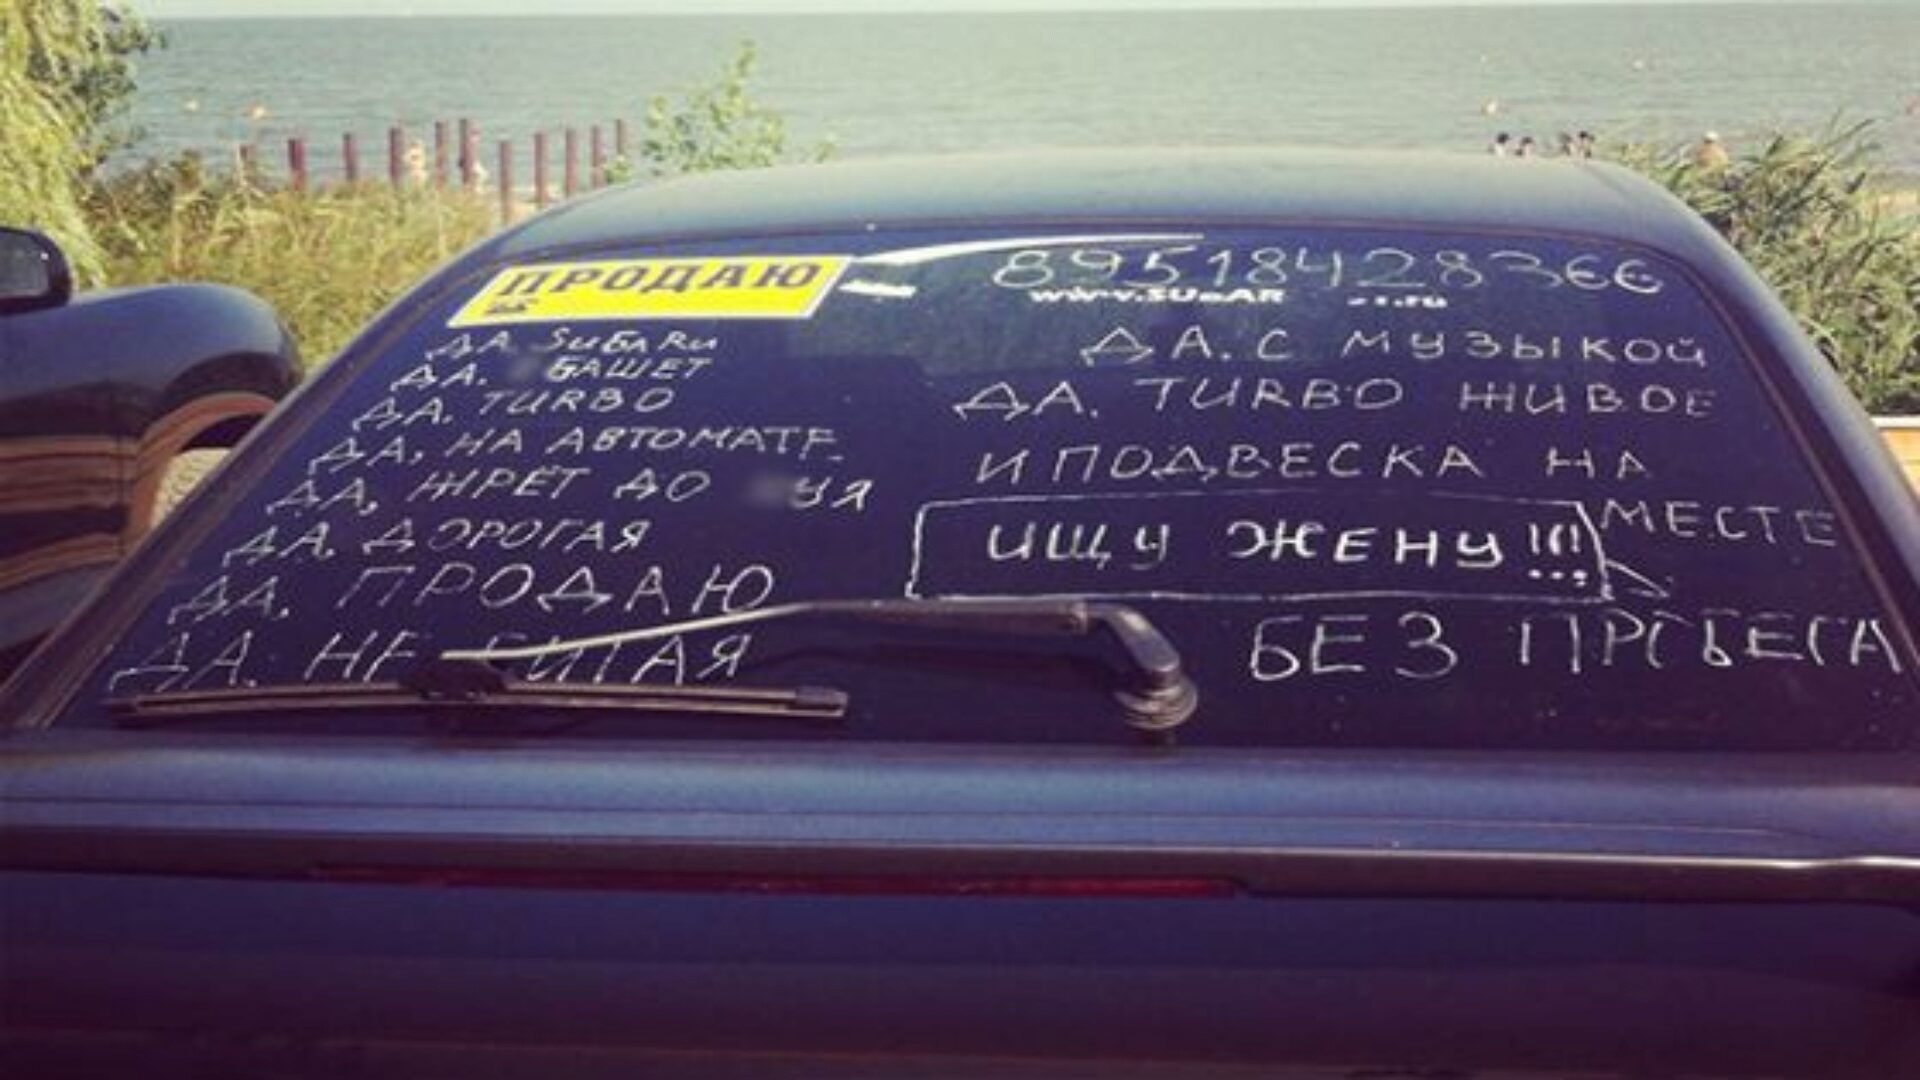 ПРОДАЮ
89518428366
ДА SUБARU
ДА. БАШЕТ
ДА. TURBO
ДА, НА АВТОМАТЕ
ДА, ЖРЕТ ДО УЯ
ДА. ДОРОГАЯ
ДА. ПРОДАЮ
ДА. НЕ БИТАЯ
ДА. С МУЗЫКОЙ
ДА. TURBO ЖИВОЕ
И ПОДВЕСКА НА
МЕСТЕ
ИЩУ ЖЕНУ!!!
БЕЗ ПРОБЕГА